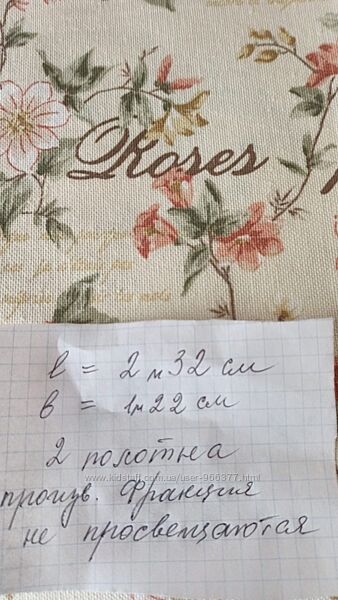 Roses
l = 2 м 32 см
в = 1м 22 см
2 полотна
www.kidstaff.com.ua/user-966377.html
произв. Франция
не просвещаются